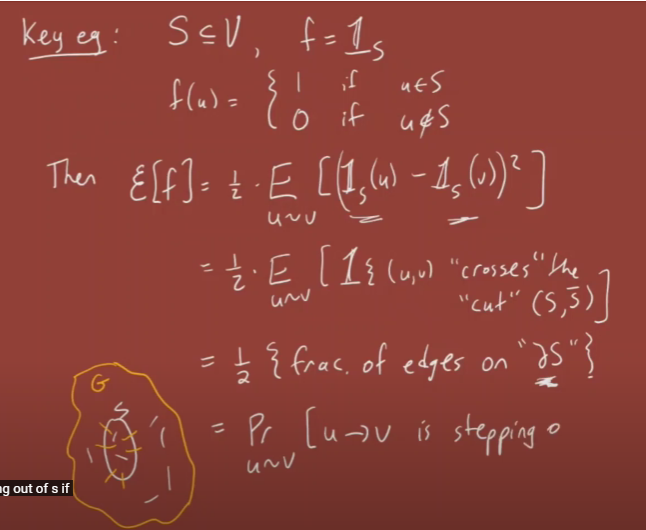 Key eg: S ⊆ V, f = 𝟙_S
f(u) = { 1 if u∈S
0 if u∉S
Then ℰ[f] = ½ · E_{u~v} [(𝟙_S(u) - 𝟙_S(v))²]
= ½ · E_{u~v} [𝟙{(u,v) "crosses" the
"cut" (S,S̄)]
= ½ {frac. of edges on "∂S"}
= Pr_{u~v} [u→v is stepping o
G
S
ng out of s if